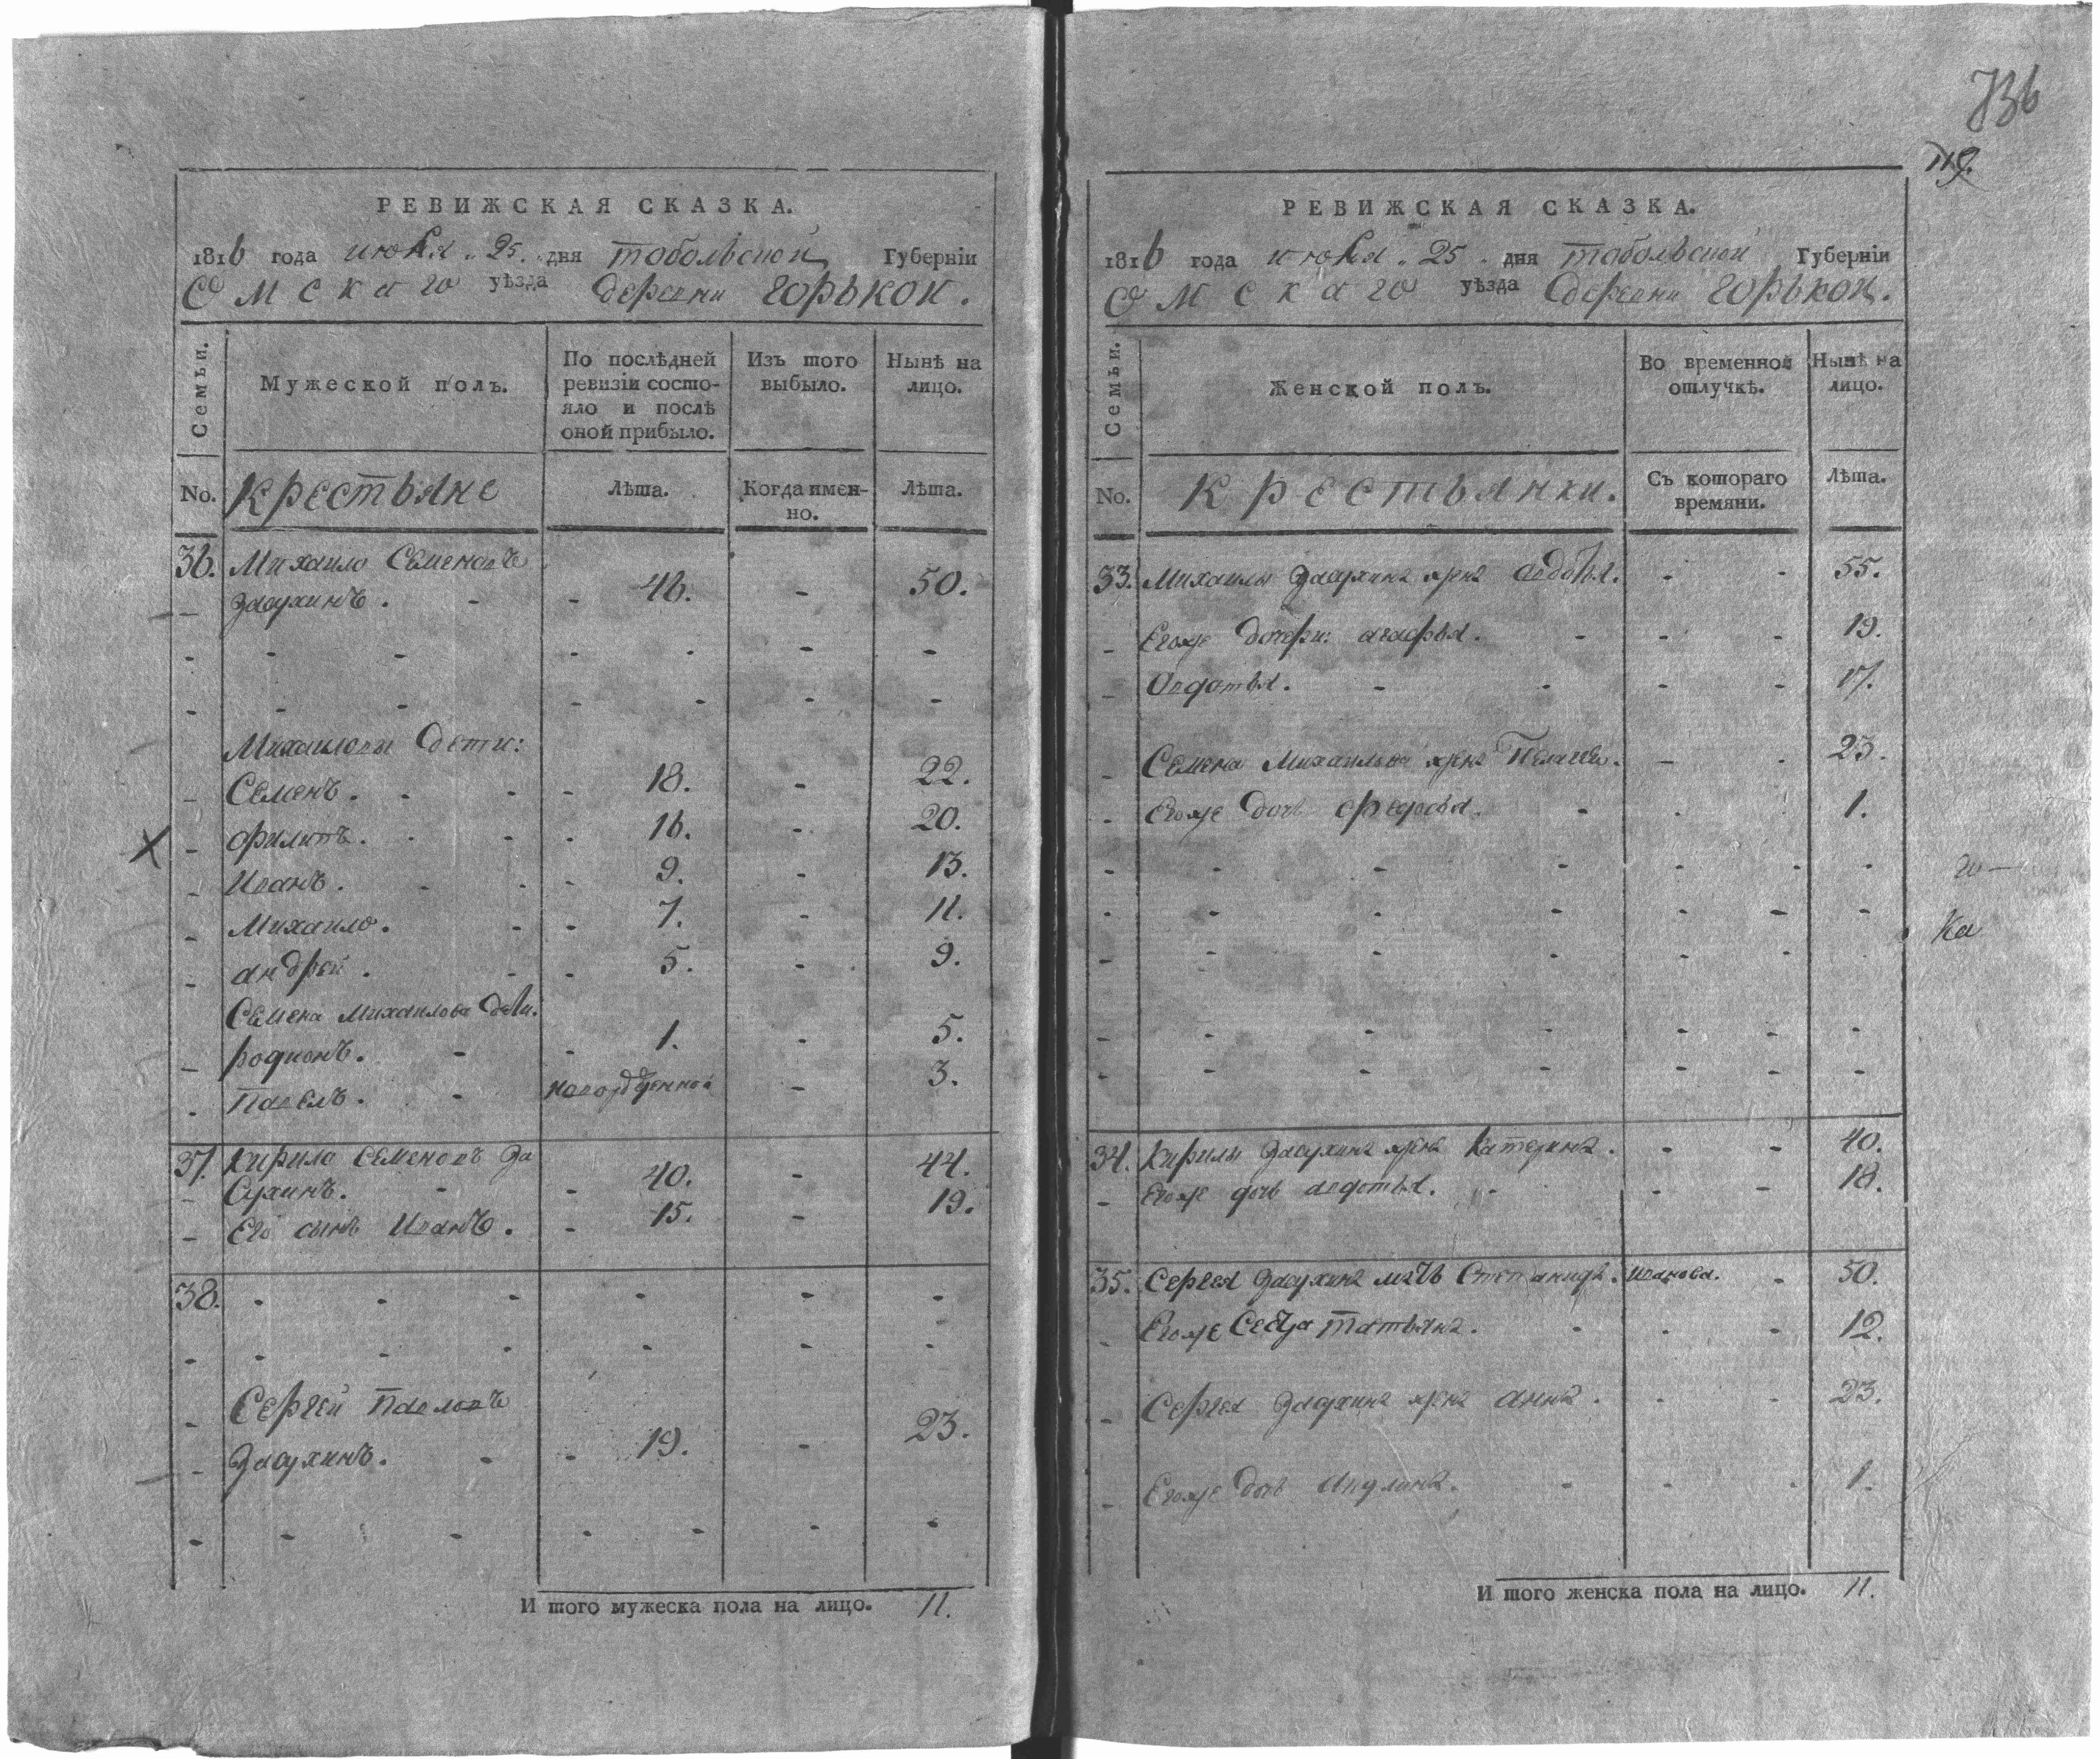 736
119.
РЕВИЖСКАЯ СКАЗКА.
1816 года июня 25. дня тобольской Губерніи
Омскаго уѣзда деревни горькой.
Семьи.
Мужеской полъ.
По послѣдней ревизіи состо-
яло и послѣ
оной прибыло.
Изъ того
выбыло.
Нынѣ на
лицо.
No.
Крестьяне
Лѣта.
Когда имен-
но.
Лѣта.
36. Михаило Семеновъ
Засухинъ. - - 46. - 50.
Михаиловы дети:
Семенъ. - - 18. - 22.
Филипъ. - - 16. - 20.
Иванъ. - - 9. - 13.
Михаило. - - 7. - 11.
андрей. - - 5. - 9.
Семена Михаилова дети.
родионъ. - - 1. - 5.
Павелъ. - новорожденной - 3.
37. Кирило Семеновъ За
Сухинъ. - - 40. - 44.
Его сынъ Иванъ. - 15. - 19.
38.
Сергей Павловъ
Засухинъ. - - 19. - 23.
И того мужеска пола на лицо. 11.
РЕВИЖСКАЯ СКАЗКА.
1816 года июня 25 дня тобольской Губерніи
Омскаго уѣзда деревни горькой.
Семьи.
Женской полъ.
Во временной
отлучкѣ.
Нынѣ на
лицо.
No.
Крестьянки.
Съ котораго
времяни.
Лѣта.
33. Михаилы Засухина жена авдотья. - - 55.
Егоже дочери: агафья. - - - 19.
Овдотья. - - - - 17.
Семена Михаилова жена Пелагея. - - 23.
Егоже дочь Федосья. - - - 1.
Ка
34. Кирилы Засухина жена Катерина. - - 40.
Егоже дочь авдотья. - - - 18.
35. Сергея Засухина мать Степанида. Иванова. - 50.
Егоже Сестра Татьяна. - - - 12.
Сергея Засухина жена анна. - - 23.
Егоже дочь - - - 1.
И того женска пола на лицо. 11.